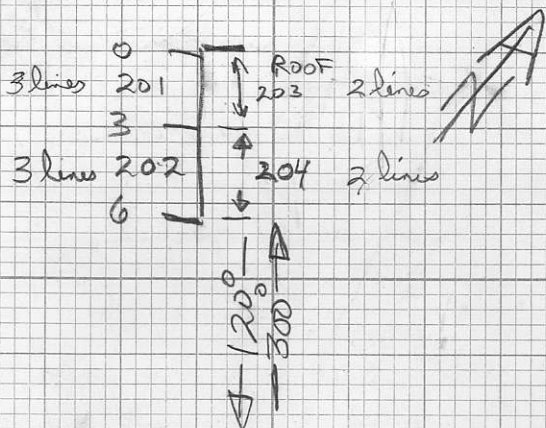 0
ROOF
3 lines 201 203 2 lines
3
3 lines 202 204 2 lines
6
120°
300°
N